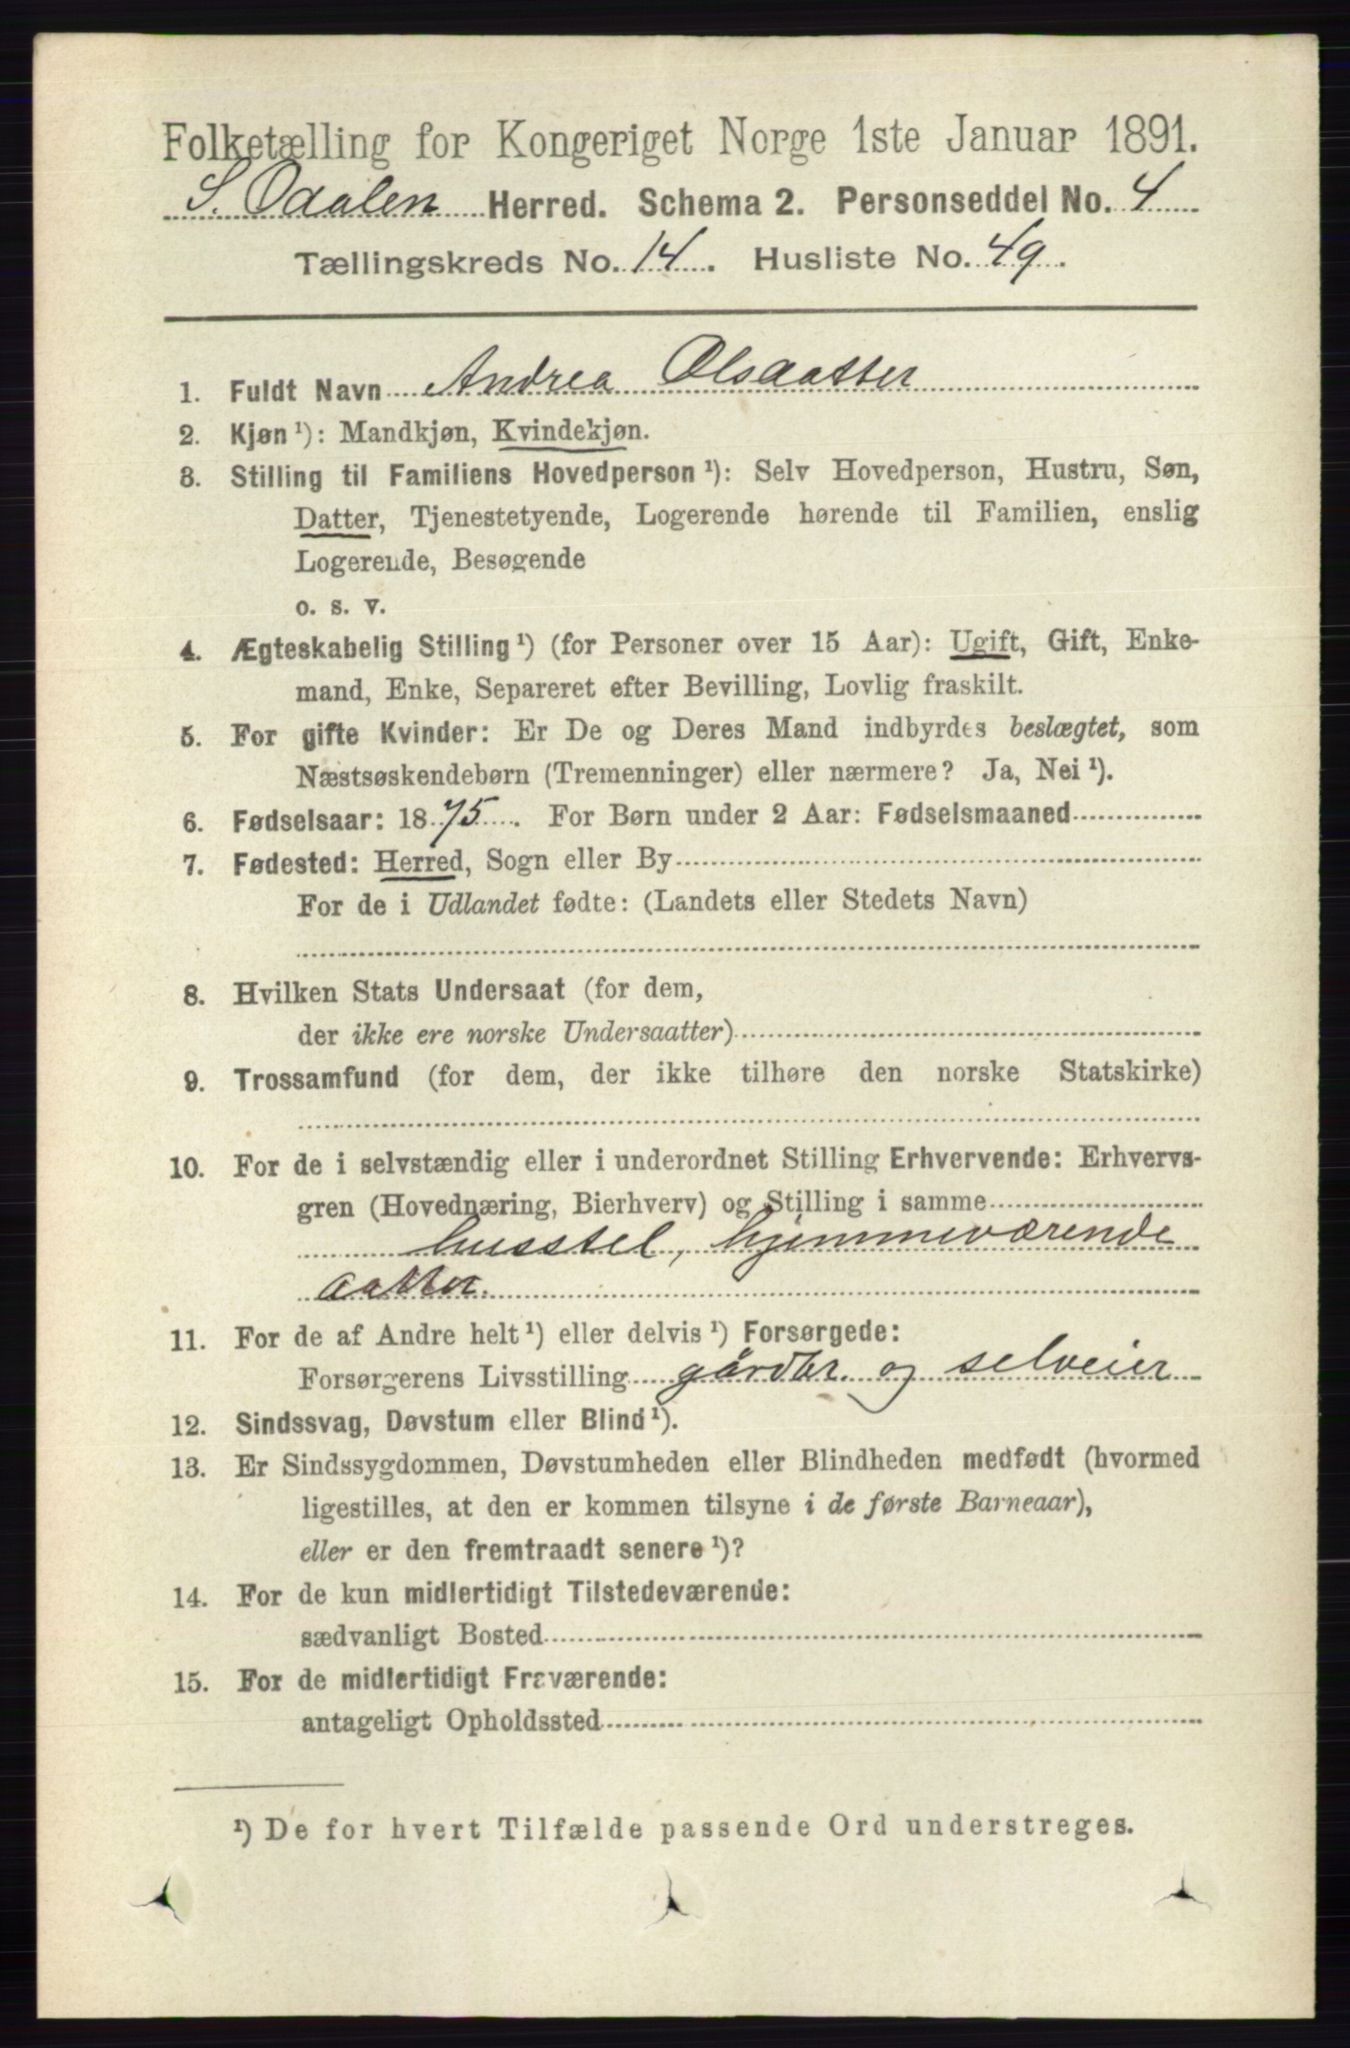 Folketælling for Kongeriget Norge 1ste Januar 1891.
S. Odalen Herred. Schema 2. Personseddel No. 4
Tællingskreds No. 14. Husliste No. 49.
1. Fuldt Navn Andrea Olsdatter
2. Kjøn ¹): Mandkjøn, Kvindekjøn.
3. Stilling til Familiens Hovedperson ¹): Selv Hovedperson, Hustru, Søn,
Datter, Tjenestetyende, Logerende hørende til Familien, enslig
Logerende, Besøgende
o. s. v.
4. Ægteskabelig Stilling ¹) (for Personer over 15 Aar): Ugift, Gift, Enke-
mand, Enke, Separeret efter Bevilling, Lovlig fraskilt.
5. For gifte Kvinder: Er De og Deres Mand indbyrdes beslægtet, som
Næstsøskendebørn (Tremenninger) eller nærmere? Ja, Nei ¹).
6. Fødselsaar: 1875. For Børn under 2 Aar: Fødselsmaaned
7. Fødested: Herred, Sogn eller By
For de i Udlandet fødte: (Landets eller Stedets Navn)
8. Hvilken Stats Undersaat (for dem,
der ikke ere norske Undersaatter)
9. Trossamfund (for dem, der ikke tilhøre den norske Statskirke)
10. For de i selvstændig eller i underordnet Stilling Erhvervende: Erhvervs-
gren (Hovednæring, Bierhverv) og Stilling i samme
husstel, hjemmeværende
datter.
11. For de af Andre helt ¹) eller delvis ¹) Forsørgede:
Forsørgerens Livsstilling gårdbr. og selveier
12. Sindssvag, Døvstum eller Blind ¹).
13. Er Sindssygdommen, Døvstumheden eller Blindheden medfødt (hvormed
ligestilles, at den er kommen tilsyne i de første Barneaar),
eller er den fremtraadt senere ¹)?
14. For de kun midlertidigt Tilstedeværende:
sædvanligt Bosted
15. For de midlertidigt Fraværende:
antageligt Opholdssted
¹) De for hvert Tilfælde passende Ord understreges.